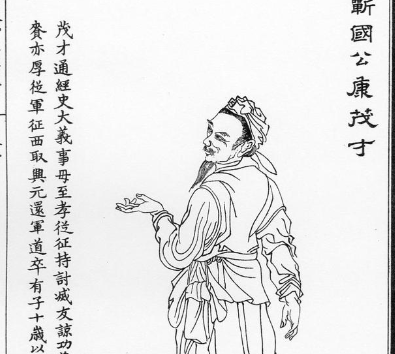 蘄國公康茂才
茂才通經史大義事母至孝從征持討臧友諒功
賚亦厚從軍征西取興元還軍道卒有子十歲以